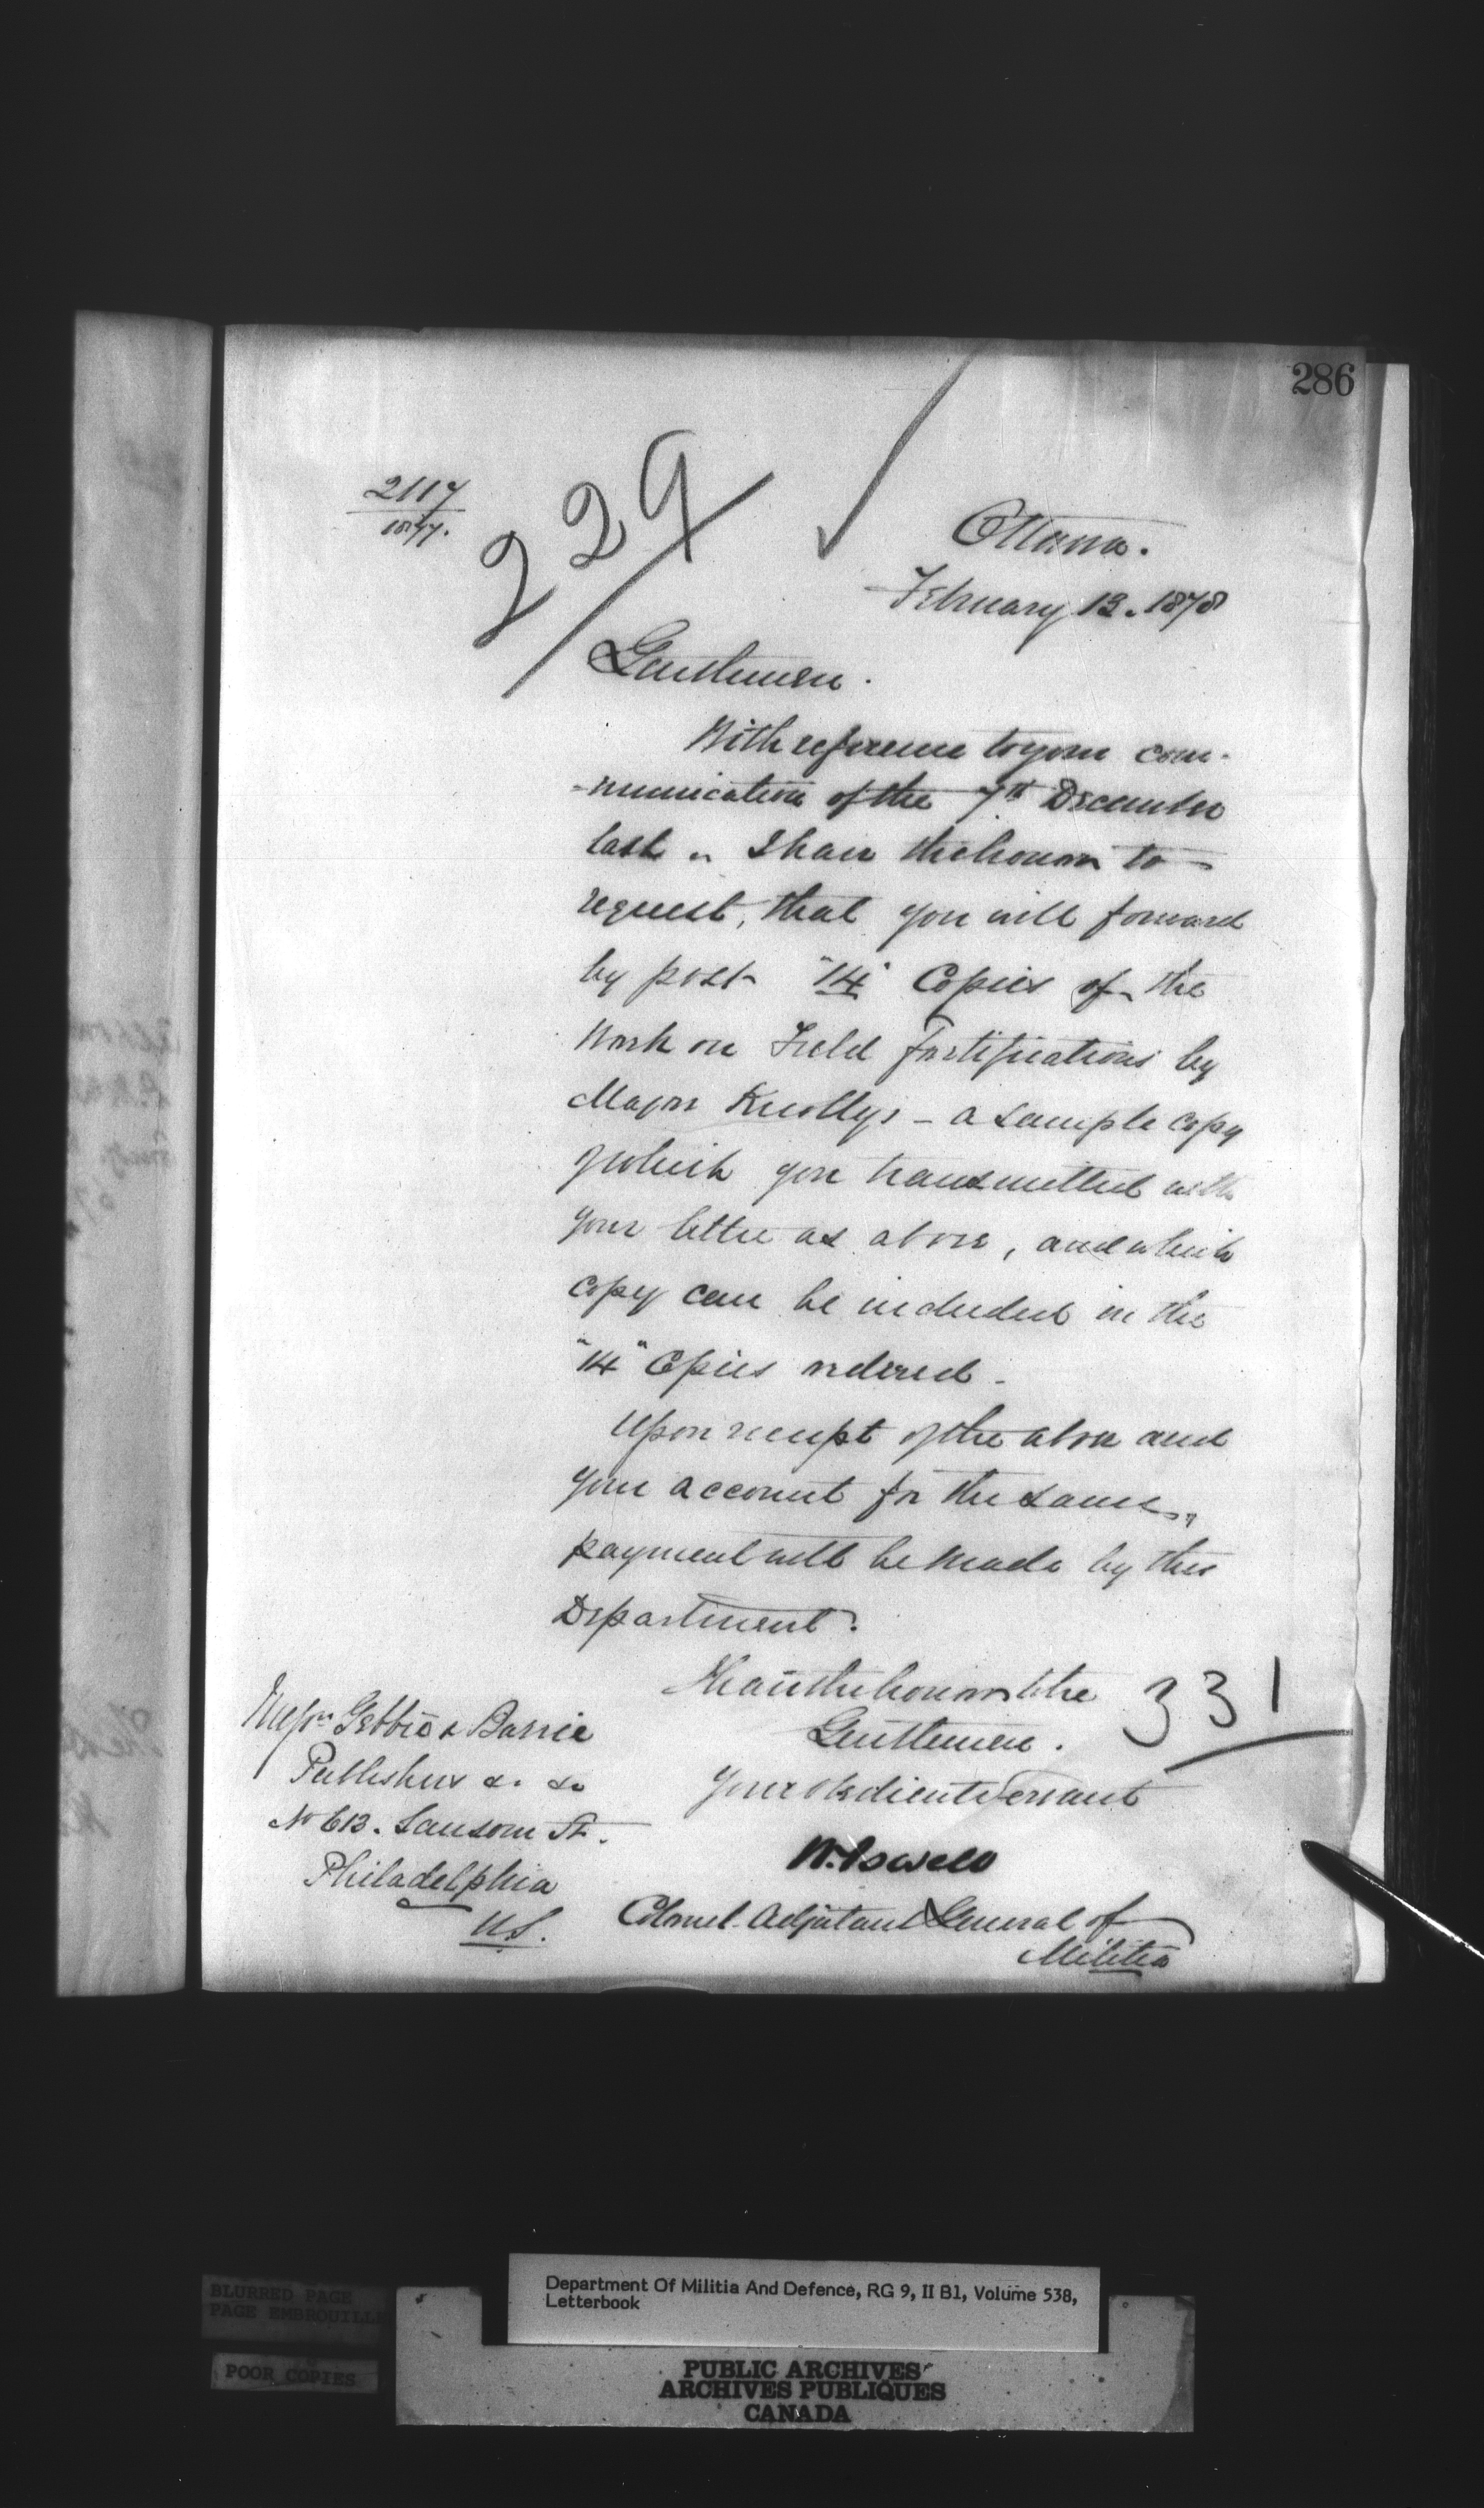 286
2117
1877.
229
Ottawa.
February 13. 1878
Gentlemen.
With reference to your com-
-munication of the 7th December
last " I have the honor to
request, that you will forward
by post "14" Copies of the
Work on Field Fortifications by
Major Knollys - a sample copy
of which you transmitted with
your letter as above, and which
copy can be included in the
"14" Copies ordered -
Upon receipt of the above and
your account for the same,
payment will be made by this
Department.
I have the honor to be
331
Gentlemen.
Your obedient Servant
W. Powell
Colonel. Adjutant General of
Militia
Messrs Gebbie & Barrie
Publishers &c &c
No 613. Sansom St.
Philadelphia
US.
Department Of Militia And Defence, RG 9, II B1, Volume 538,
Letterbook
BLURRED PAGE
PAGE EMBROUILLE
POOR COPIES
PUBLIC ARCHIVES
ARCHIVES PUBLIQUES
CANADA